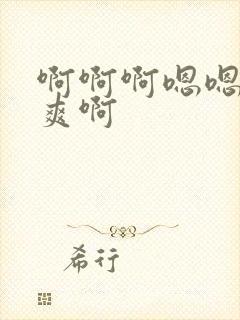 啊啊啊嗯嗯
爽啊
希行